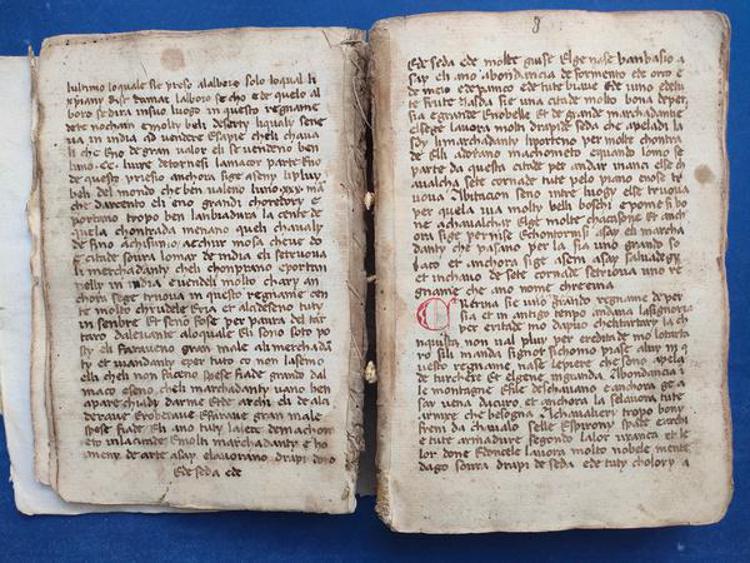 lultimo loquale sie preso alalboro solo loqual li
xpiany disc damar lalboro secho ede quelo al
boro sedira insuo luogo in questo regniame
de te nochani emolty beli deserty liqualy sene
va in india ad vendere esapie cheli chava
li che eno de gran valor eli se vendeno ben
luno cc livre detornesi lamacor parte eno
de questo priesio anchora sige aseny lipluy
beli del mondo che ben valeno luno xxx
che darcento eli eno grandi choredory e
portano tropo ben lanbiadura la cente de
quela chontrada menano queli chavaly
de fino achisi aechur mosa che ve do
e citade soura lomar de india eli setruova
li merchadanty cheli chonprano eportan
nelly in india evendeli molto chary an
chora sege truova in questo regniame cen
te molto chrudele eria et alcideseno tuty
in senbre et seno fose per paura del tar
taro dalevante aloquale eli sono soto po
sty eli faraveno gran male ali merchada
ty et viandanty eper tuto co non laseno
elli cheli non faceno spese fiade grando dal
maco eseno cheli marchadanty vano ben
apare chiady darme ede archi eli de alci
derave eroberave efarave gran male
spese fiade eli ano tuty lalece demachom
eto inlacitade emolti marchadanty e ho
meny de arte asay elavorano drapi doro
ede seda ede
8
ede seda ede molte guise elge nase banbasio a
say eli ano abondancia de formento ede orco e
de meio edepanico ede tute biave ede vino edetu
te frute iasda sie una citade molto bona deper
sia egrande enobelle et de grande marchadantie
elsege lavora molti drapi de seda che apeladi ia
sdy limarchadanty liporteno per molte chontra
de elli adorano machometo equando lomo se
parte da questa citade per andar inanci else ch
avalcha sete cornade tute pelo piano enose tr
uova abitacion seno intre luogy else truova
per quela via molty belli boschi epomesi bo
ne achavalchar elge molte chacasone et anch
ora sige pernise echontornisi asay eli marcha
danty che pasano per la sia uno grando so
laco et anchora sige aseni asay salvadegy
et inchavo de sete cornade setruova uno re
gniame che ano nome chrerina
Crerina sie uno grando regniame de per
sia et in antigo tenpo andava lasignoria
per eritade mo dapuo chelitartary la ch
nquista non val pluy per eredita de mo lotarta
ro sili manda signor sichomo piase aluy in q
uesto regniame nase lepiere che sono apela
de turchese et elgene ingranda abondancia i
le montagne esile deschavano eanchora ge a
say vena dacuro et anchora la selavora tute
arnixe che besogna alchavalieri tropo bony
freni da chavalo selle espirony spade earchi
e tute armadure segondo lalor uxanca et le
lor done edoncele lavora molto nobele mente
dago soura drapi de seda ede tuty cholory a